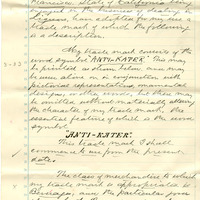 Francisco, State of California being
engaged in the business of dealing in
Liquors, have adopted for my use a
trade mark of which the following
is a description.
My trade mark consists of the
word symbol "ANTI-KATER." This may
be printed as shown below, and may
be used alone or in conjunction with
pictorial representations, memorial
designs, or other words; but these may
be omitted without materially altering
the character of my trade mark, the
essential feature of which is the word
symbol
"ANTI-KATER."
This trade mark I shall
commence to use from the present
date.
The class of merchandise to which
my trade mark is appropriated is
Beverages, and the particular goods